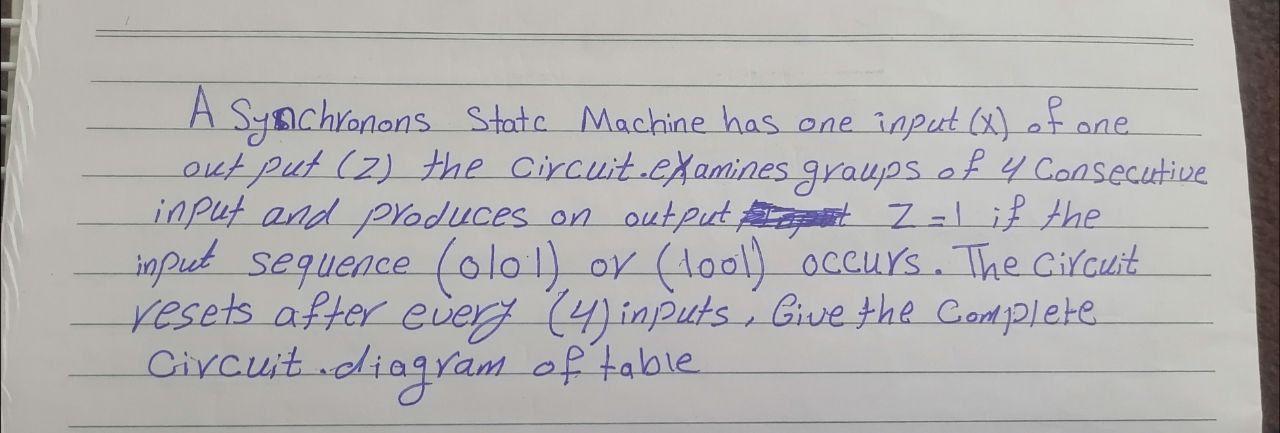 A Synchronons State Machine has one input (x) of one
out put (Z) the circuit.examines groups of 4 Consecutive
input and produces on output Z=1 if the
input sequence (0101) or (1001) occurs. The circuit
resets after every (4) inputs, Give the Complete
Circuit.diagram of table